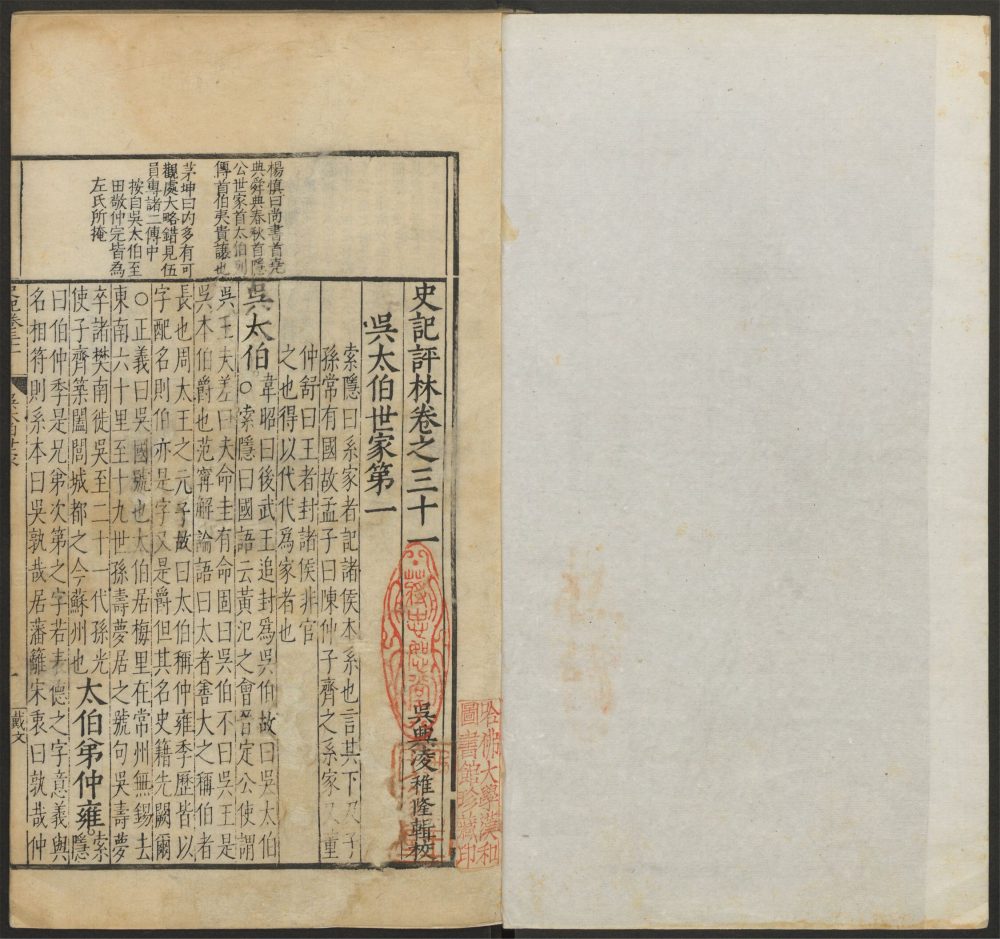 史記評林卷之三十一
吳興凌稚隆輯校
吳太伯世家第一
索隱曰系家者記諸侯本系也言其下及子
孫常有國故孟子曰陳仲子齊之系家又董
仲舒曰王者封諸侯非官
之也得以代代爲家者也
吳太伯
韋昭曰後武王追封爲吳伯故曰吳太伯
○索隱曰國語云黃池之會晉定公使謂
吳王夫差曰夫命圭有命固曰吳伯不曰吳王是
吳本伯爵也范甯解論語曰太者善大之稱伯者
長也周太王之元子故曰太伯稱仲雍季歷皆以
字配名則伯亦是字又是爵但其名史籍先闕爾
○正義曰吳國號也太伯居梅里在常州無錫去
東南六十里至十九世孫壽夢居之號句吳壽夢
卒諸樊南徙吳至二十一代孫光
使子胥築闔閭城都之今蘇州也
太伯弟仲雍
索隱
曰伯仲季是兄弟次第之字若表德之字意義與
名相符則系本曰吳孰哉居藩籬宋衷曰孰哉仲
楊慎曰尚書首堯
典舜典春秋首隱
公世家首太伯列
傳首伯夷貴讓也
茅坤曰內多有可
觀處大略錯見伍
員專諸二傳中
按自吳太伯至
田敬仲完皆為
左氏所掩
戴文
哈佛大學漢和
圖書館珍藏印